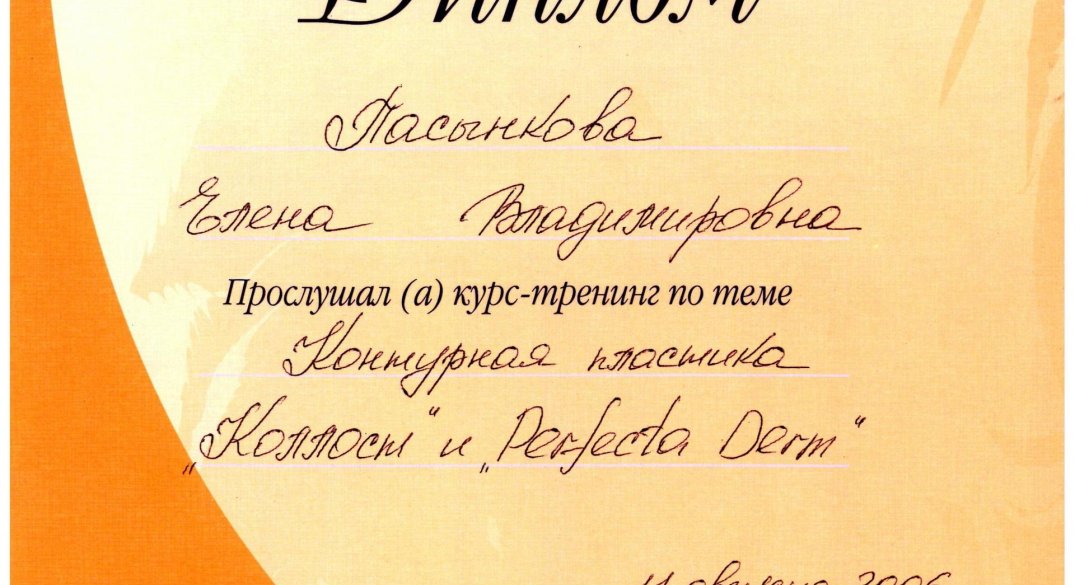 Диплом
Пасынкова
Елена Владимировна
Прослушал (а) курс-тренинг по теме
Контурная пластика
„Коллост“ и „Perfecta Derm“